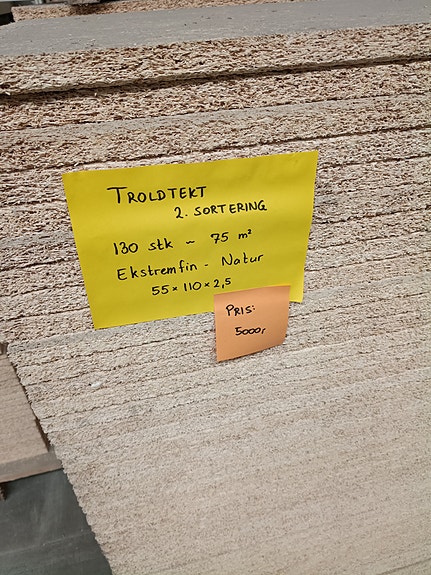 TROLDTEKT
2. SORTERING
130 stk ~ 75 m²
Ekstremfin - Natur
55 × 110 × 2,5
PRIS:
5000,-